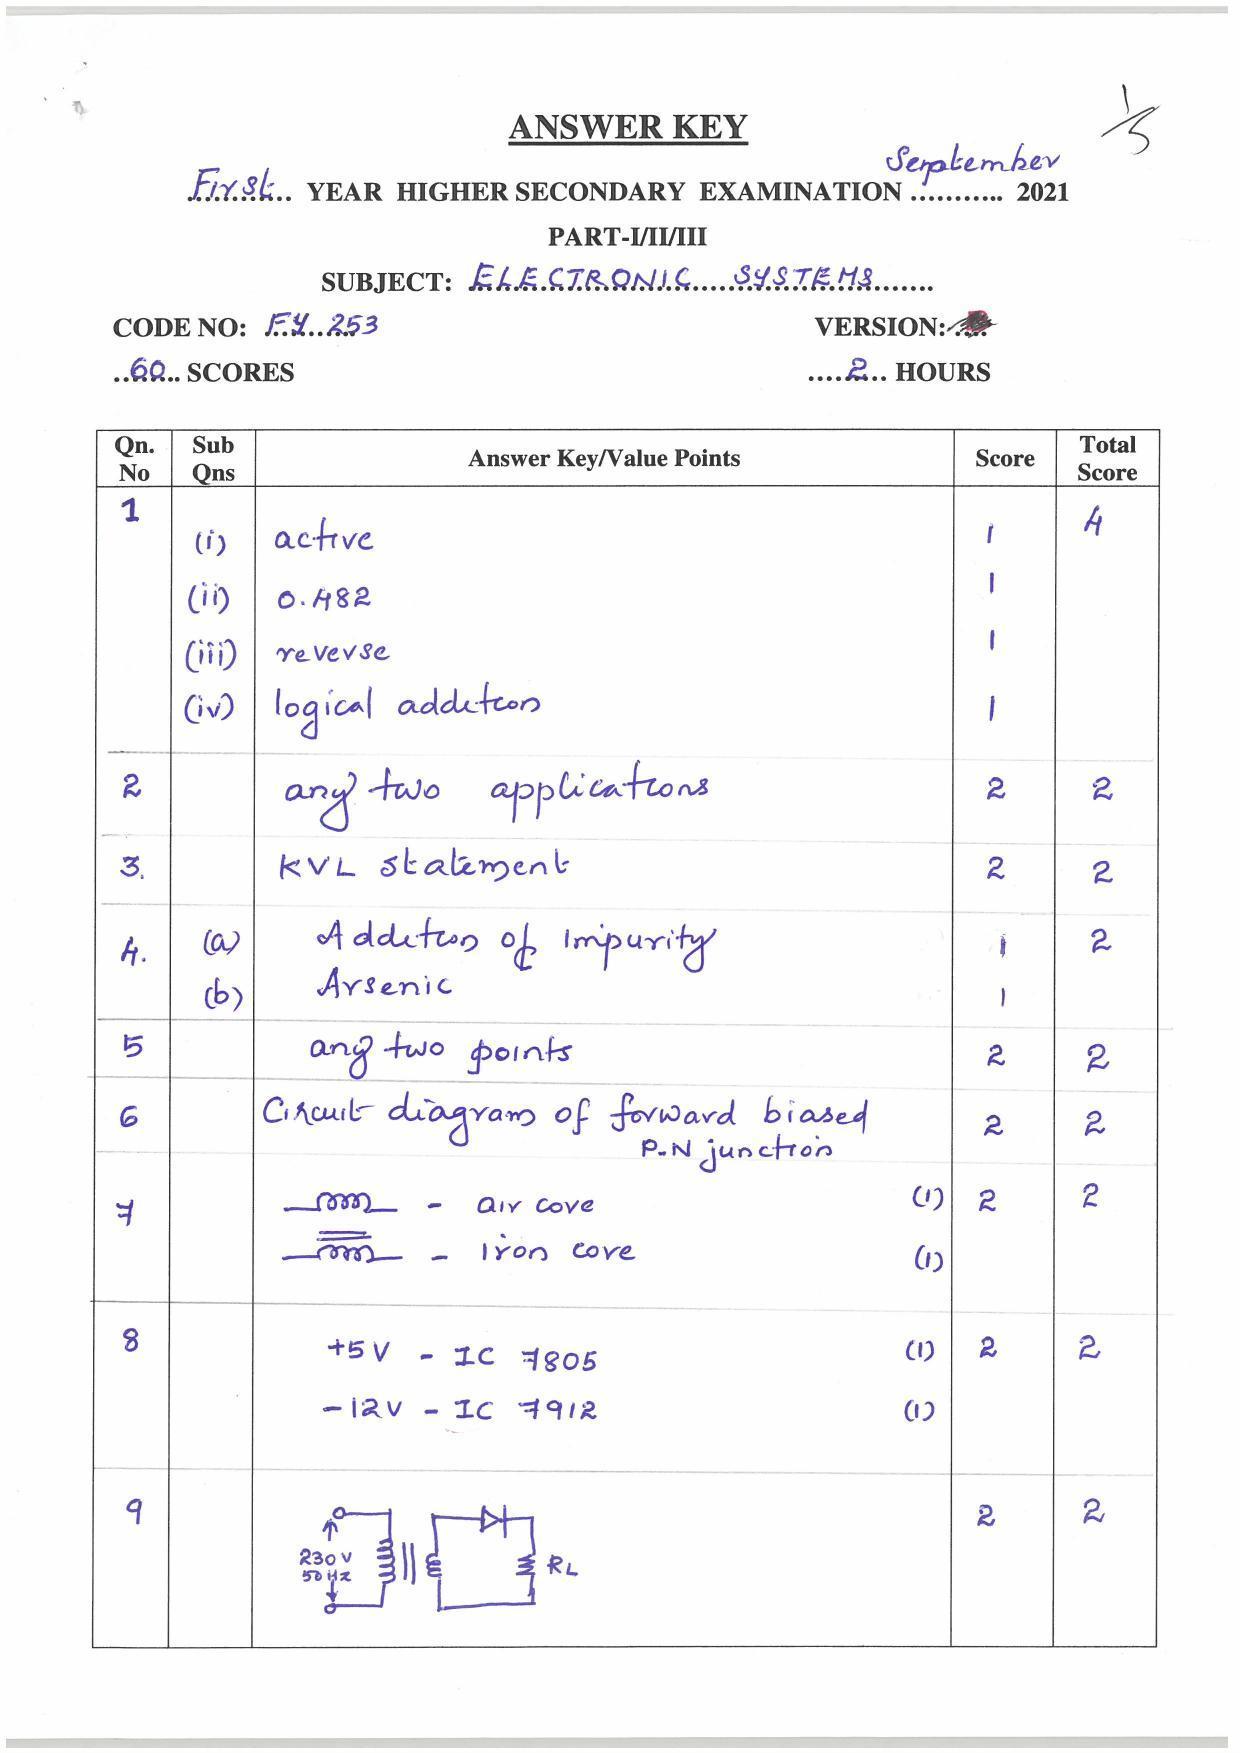 1/5
ANSWER KEY
First YEAR HIGHER SECONDARY EXAMINATION September 2021
PART-I/II/III
SUBJECT: ELECTRONIC SYSTEMS
CODE NO: FY 253 VERSION:
60 SCORES 2 HOURS
Qn. No Sub Qns Answer Key/Value Points Score Total Score
1 4
(i) active 1
(ii) 0.482 1
(iii) reverse 1
(iv) logical addition 1
2 any two applications 2 2
3. KVL statement 2 2
4. (a) Addition of Impurity 1 2
(b) Arsenic 1
5 any two points 2 2
6 Circuit diagram of forward biased 2 2
P-N junction
7 - air core (1) 2 2
- Iron core (1)
8 +5V - IC 7805 (1) 2 2
-12V - IC 7912 (1)
9 2 2
230V
50Hz
RL